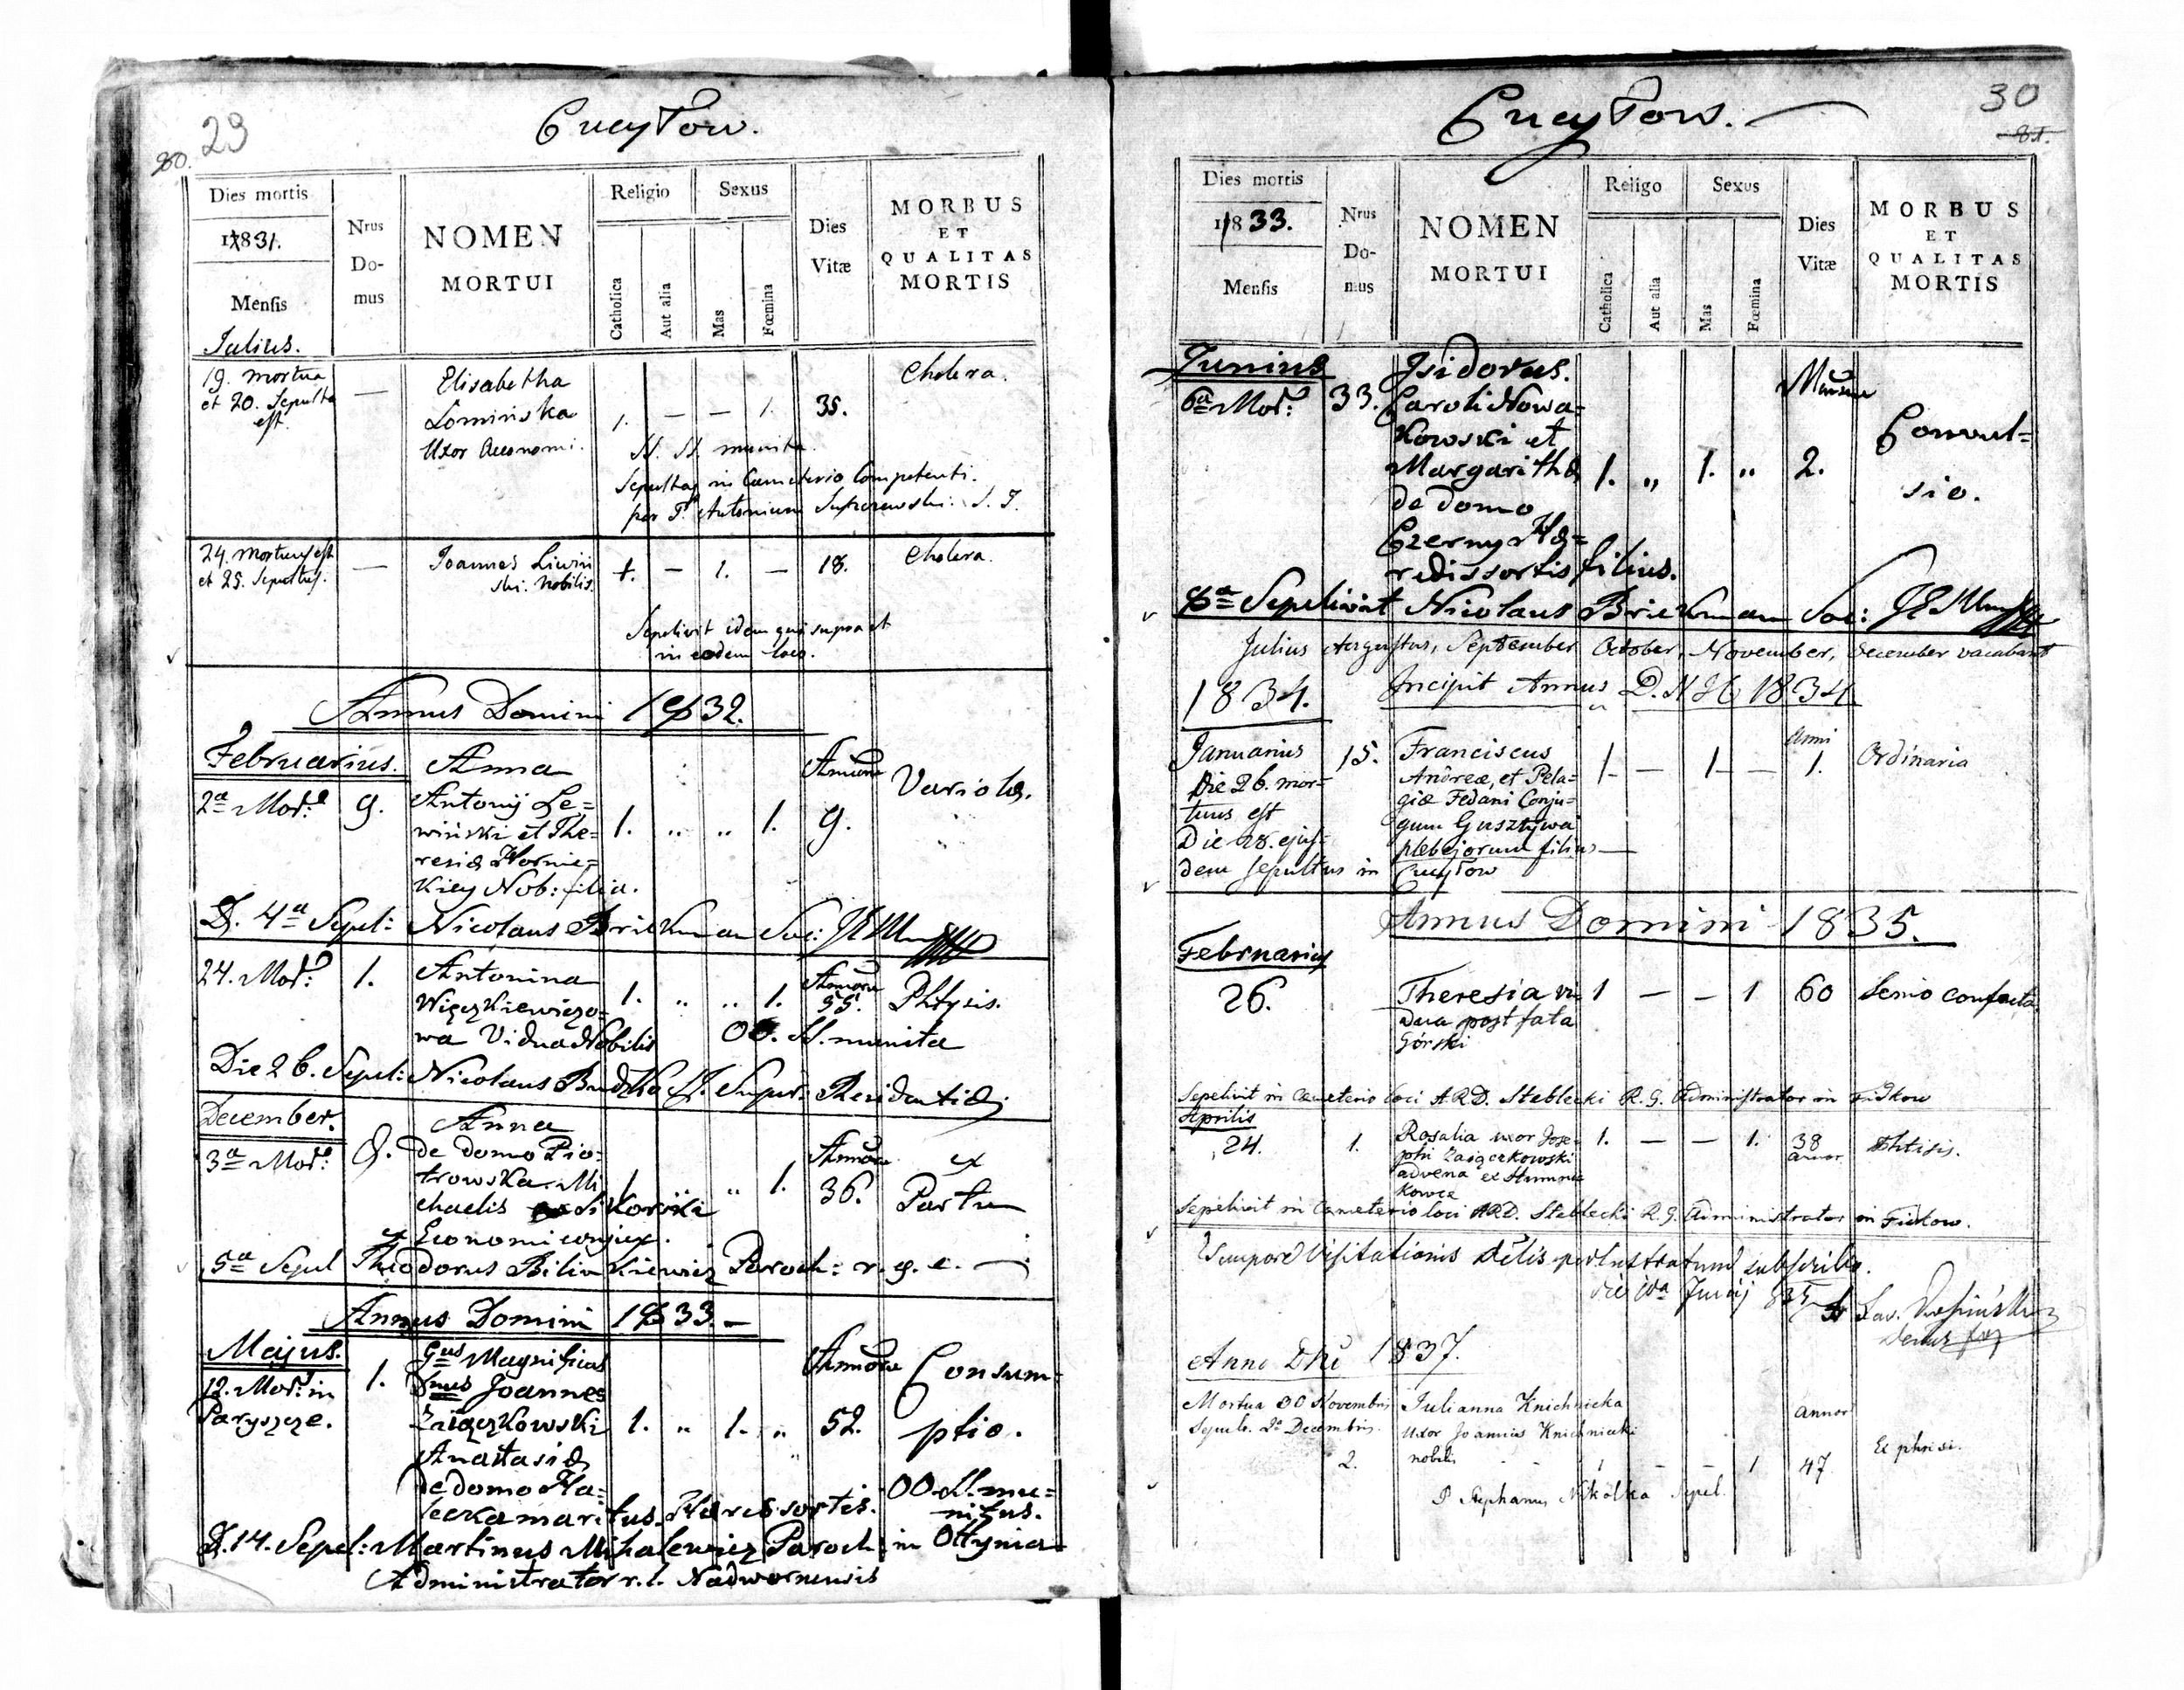 29
80.
Cucyłow.
Dies mortis
1831.
Mensis
Julius.
Nrus
Do-
mus
NOMEN
MORTUI
Religio
Catholica
Aut alia
Sexus
Mas
Fœmina
Dies
Vitæ
MORBUS
ET
QUALITAS
MORTIS
19. mortua
et 20. Sepulta
est.
—
Elisabetha
Łomińska
Uxor Oeconomi.
1. — — 1. 35. Cholera.
SS. SS. munita.
Sepulta in Cœmeterio Competenti.
per P. Antonium S. J.
24. mortuus est
et 25. Sepultus.
—
Joannes Liwiń
ski. Nobilis.
1. — 1. — 18. Cholera.
Sepelivit idem qui supra et
in eodem loco.
Annus Domini 1832.
Februarius.
2a Mort:
9.
Anna
Antonij Le=
wiński et The=
resiæ Nornic=
kiey Nob: filia.
1. „ „ 1.
Annorum
9.
Variola.
D. 4a Sepel: Nicolaus Brickman Soc: JESU
24. Mort:
1.
Antonina
Więczkiewiczo=
wa Vidua Nobilis
1. „ „ 1.
Annorum
55.
Phtysis.
OO. SS. munita
Die 26. Sepel: Nicolaus S.J. Super: Residentiæ
December.
3a Mort:
9.
Anna
de domo Pio=
trowska Mi
chaelis Sikorski
Economi conjux.
1. „ 1.
Annorum
36.
ex
Partu
5a Sepel Theodorus Paroch: r. g. c.
Annus Domini 1833.
Majus.
12. Mort: in
Paryszcze.
1.
Gnus Magnificus
Dnus Joannes
Zaięczkowski
Anastasiæ
de domo Ha=
łecka maritus. Hæres sortis.
1. „ 1. „
Annorum
52.
Consum=
ptio.
OO. SS. mu=
nitus.
D. 14. Sepel: Martinus Mihalewicz Paroch: in Ottynia
Administrator r. l. Nadwornensis
30
81.
Cucyłow.
Dies mortis
1833.
Mensis
Nrus
Do-
mus
NOMEN
MORTUI
Reiigo
Catholica
Aut alia
Sexus
Mas
Fœmina
Dies
Vitæ
MORBUS
ET
QUALITAS
MORTIS
Junius
6a Mort:
33.
Isidorus.
Caroli Nowa=
kowski et
Margarithæ
de domo
Czerny Hæ=
redis sortis filius.
1. „ 1. „
Mensium
2.
Convul=
sio.
8a Sepelivit Nicolaus Brickman Soc: JESU
Julius Augustus, September October, November, December vacabant
1834. Incipit Annus D. N. J. C. 1834.
Januarius
Die 26. mor=
tuus est
Die 28. ejus=
dem sepultus in
15.
Franciscus
Andreæ, et Pela=
giæ Fedani Conju=
gum Gusztywa
plebejorum filius
Cucyłow
1. — 1. —
Anni
1.
Ordinaria
Annus Domini 1835.
Februarius
26.
Theresia vi
dua post fata
Górski
1 — — 1 60 Senio confecta
Sepelivit in Cœmeterio loci A.R.D. Steblecki R. G. Administrator in Fitkow
Aprilis
24.
1.
Rosalia uxor Jose=
phi Zaięczkowski
advena ex
1. — — 1.
38
annor.
Phtisis.
Sepelivit in Cœmeterio loci A.R.D. Steblecki R. G. Administrator in Fitkow.
Tempore Visitationis perlustratum subscribo.
die 10a Junij 835
Anno Dni 1837.
Mortua 30 Novembris
Sepult. 2a Decembris.
2.
Julianna Knichnicka
uxor Joannis Knichnicki
nobilis
1 — — 1
annor
47
Ex phtisi.
P Stephanus Sepel.